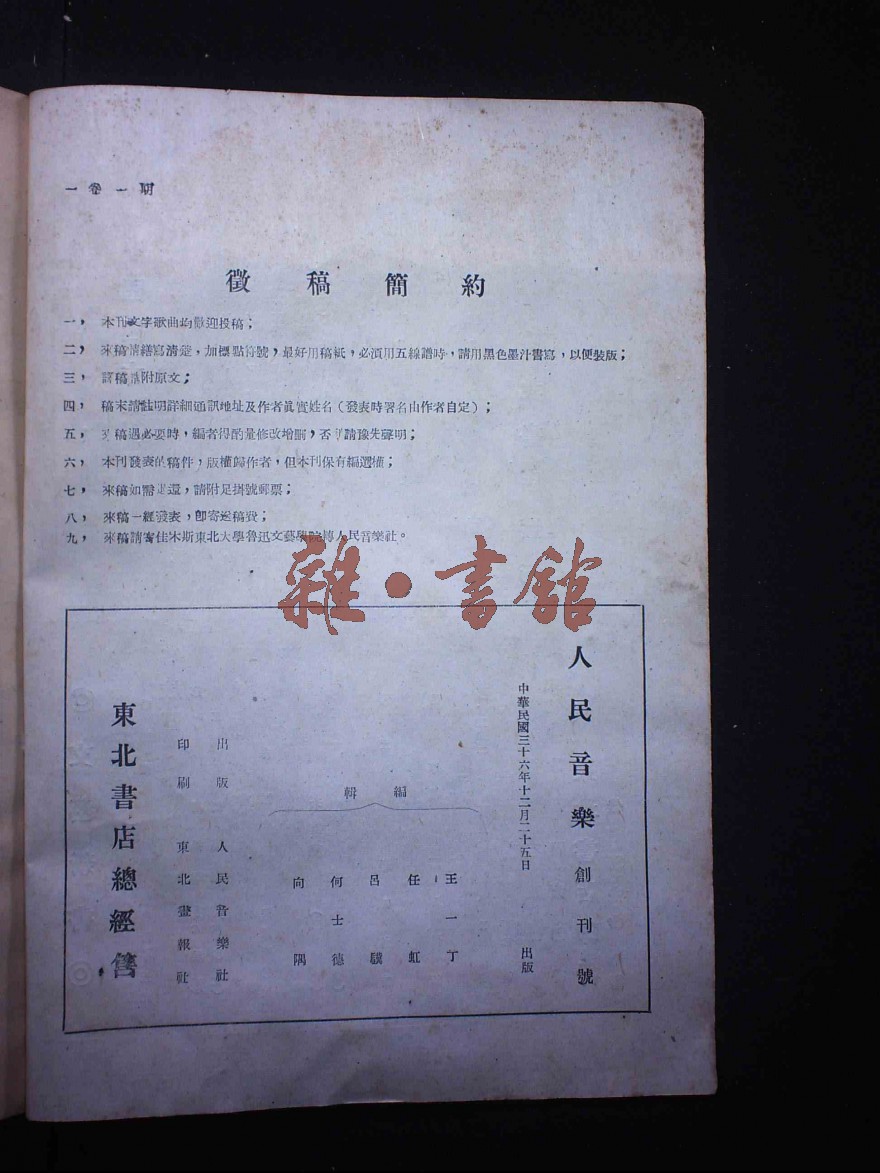 一卷一期
徵稿簡約
一，本刊文字歌曲均歡迎投稿；
二，來稿請繕寫清楚，加標點符號，最好用稿紙，必須用五線譜時，請用黑色墨汁書寫，以便裝版；
三，譯稿請附原文；
四，稿末請註明詳細通訊地址及作者眞實姓名（發表時署名由作者自定）；
五，來稿遇必要時，編者得酌量修改增刪，否則請豫先聲明；
六，本刊發表的稿件，版權歸作者，但本刊保有編選權；
七，來稿如需退還，請附足掛號郵票；
八，來稿一經發表，卽寄送稿費；
九，來稿請寄佳木斯東北大學魯迅文藝學院轉人民音樂社。
雜·書館
人民音樂創刊號
中華民國三十六年十二月二十五日出版
編輯
王一丁
任虹
呂驥
何士德
向隅
出版 人民音樂社
印刷 東北畫報社
東北書店總經售